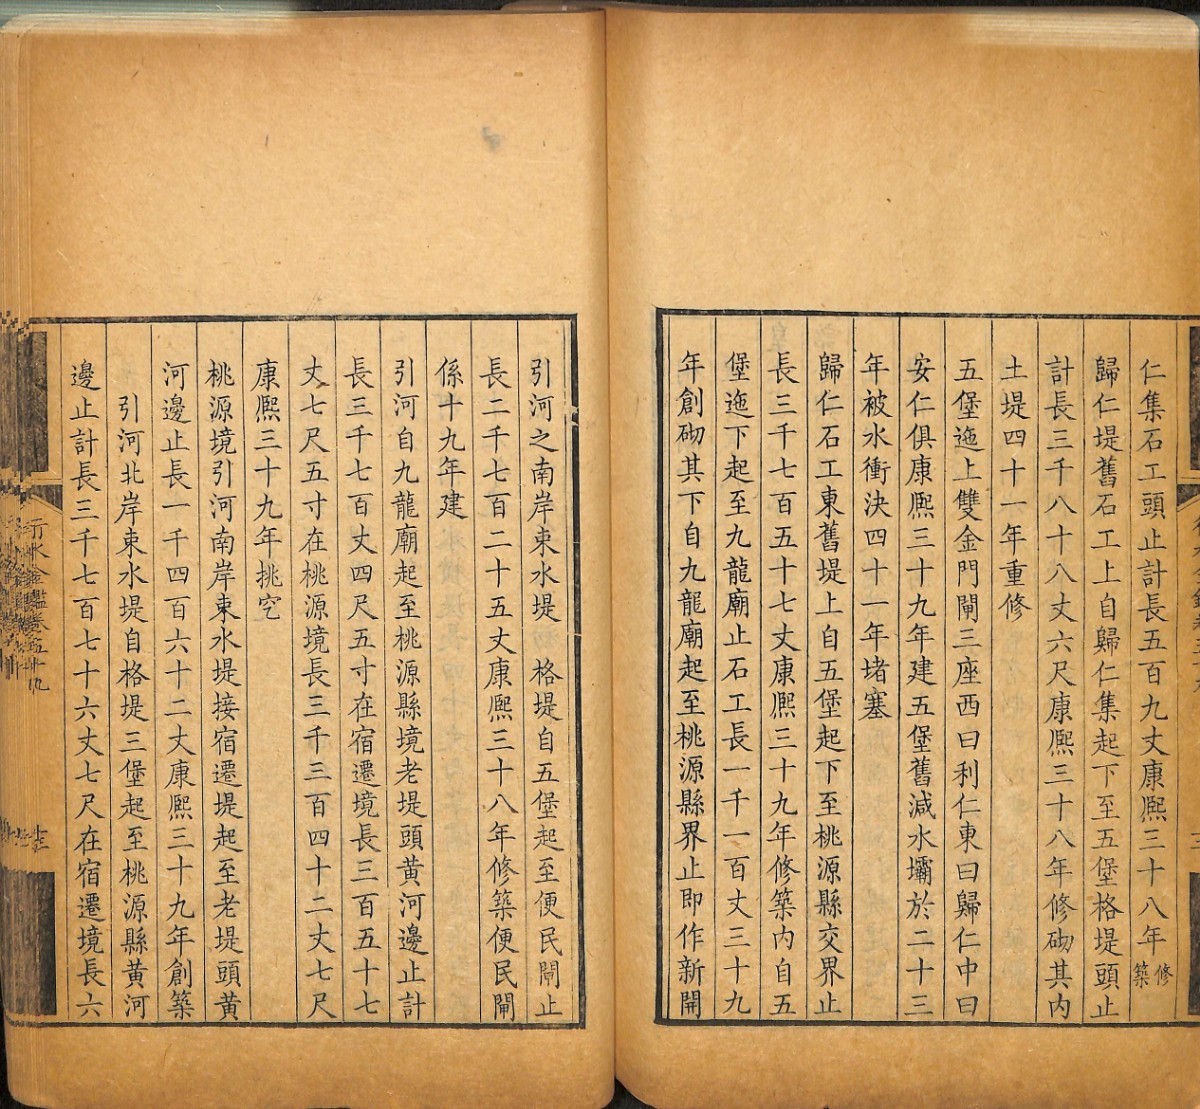 仁集石工頭止計長五百九丈康熙三十八年修築
歸仁堤舊石工上自歸仁集起下至五堡格堤頭止
計長三千八十八丈六尺康熙三十八年修砌其内
土堤四十一年重修
五堡迤上雙金門閘三座西曰利仁東曰歸仁中曰
安仁俱康熙三十九年建五堡舊減水壩於二十三
年被水衝決四十一年堵塞
歸仁石工東舊堤上自五堡起下至桃源縣交界止
長三千七百五十七丈康熙三十九年修築内自五
堡迤下起至九龍廟止石工長一千一百丈三十九
年創砌其下自九龍廟起至桃源縣界止即作新開
引河之南岸束水堤 格堤自五堡起至便民閘止
長二千七百二十五丈康熙三十八年修築便民閘
係十九年建
引河自九龍廟起至桃源縣境老堤頭黄河邊止計
長三千七百丈四尺五寸在宿遷境長三百五十七
丈七尺五寸在桃源境長三千三百四十二丈七尺
康熙三十九年挑空
桃源境引河南岸束水堤接宿遷堤起至老堤頭黄
河邊止長一千四百六十二丈康熙三十九年創築
引河北岸束水堤自格堤三堡起至桃源縣黄河
邊止計長三千七百七十六丈七尺在宿遷境長六
行水金鑑卷五十九